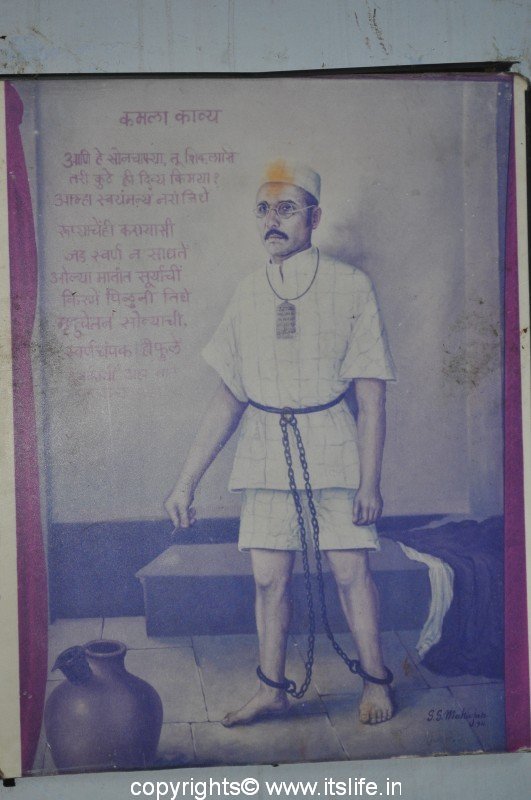 कमला काव्य
आणि हे सोनचाफ्या, तू शिकलासि
तरी कुठे ही दिव्य किमया?
आम्हा स्वयंमन्य नरां जिथे
रूप्याचेंही करायासी
जड स्वर्ण न साधतें
ओल्या मातीत सूर्याचीं
किरणे पिळुनी तिथे
मृदुचेतन सोन्याची,
स्वर्णचंपक ही फुले
S.S. 
copyrights© www.itslife.in